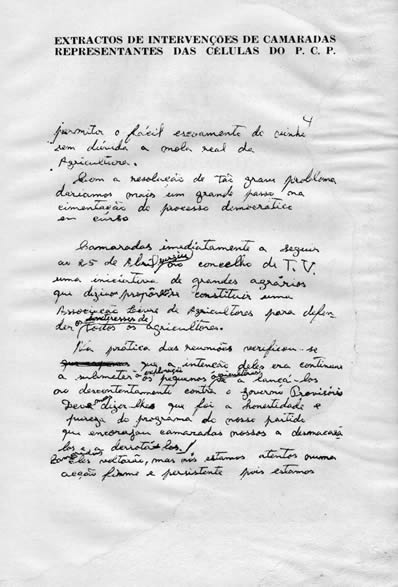 EXTRACTOS DE INTERVENÇÕES DE CAMARADAS
REPRESENTANTES DAS CÉLULAS DO P. C. P.
4
permitir o fácil escoamento do vinho
sem dúvida a mola real da
Agricultura.
Com a resolução de tão grave problema
daríamos mais um grande passo na
cimentação do processo democrático
em curso
Camaradas imediatamente a seguir
ao 25 de Abril surgiu no concelho de T. V.
uma iniciativa de grandes agrários
que diziam constituir uma
Associação Livre de Agricultores para defen
der os interesses de todos os agricultores.
Na prática das reuniões verificou-se
que a intenção deles era continuar
a submeter à exploração os pequenos agricultores e a lançá-los
ao descontentamento contra o governo Provisório
Devemos dizer-lhe que foi a honestidade e
pureza do programa do nosso partido
que encorajou camaradas nossos a desmascará
los e derrotá-los
Camaradas Eles voltarão, mas nós estamos atentos numa
acção firme e persistente pois estamos